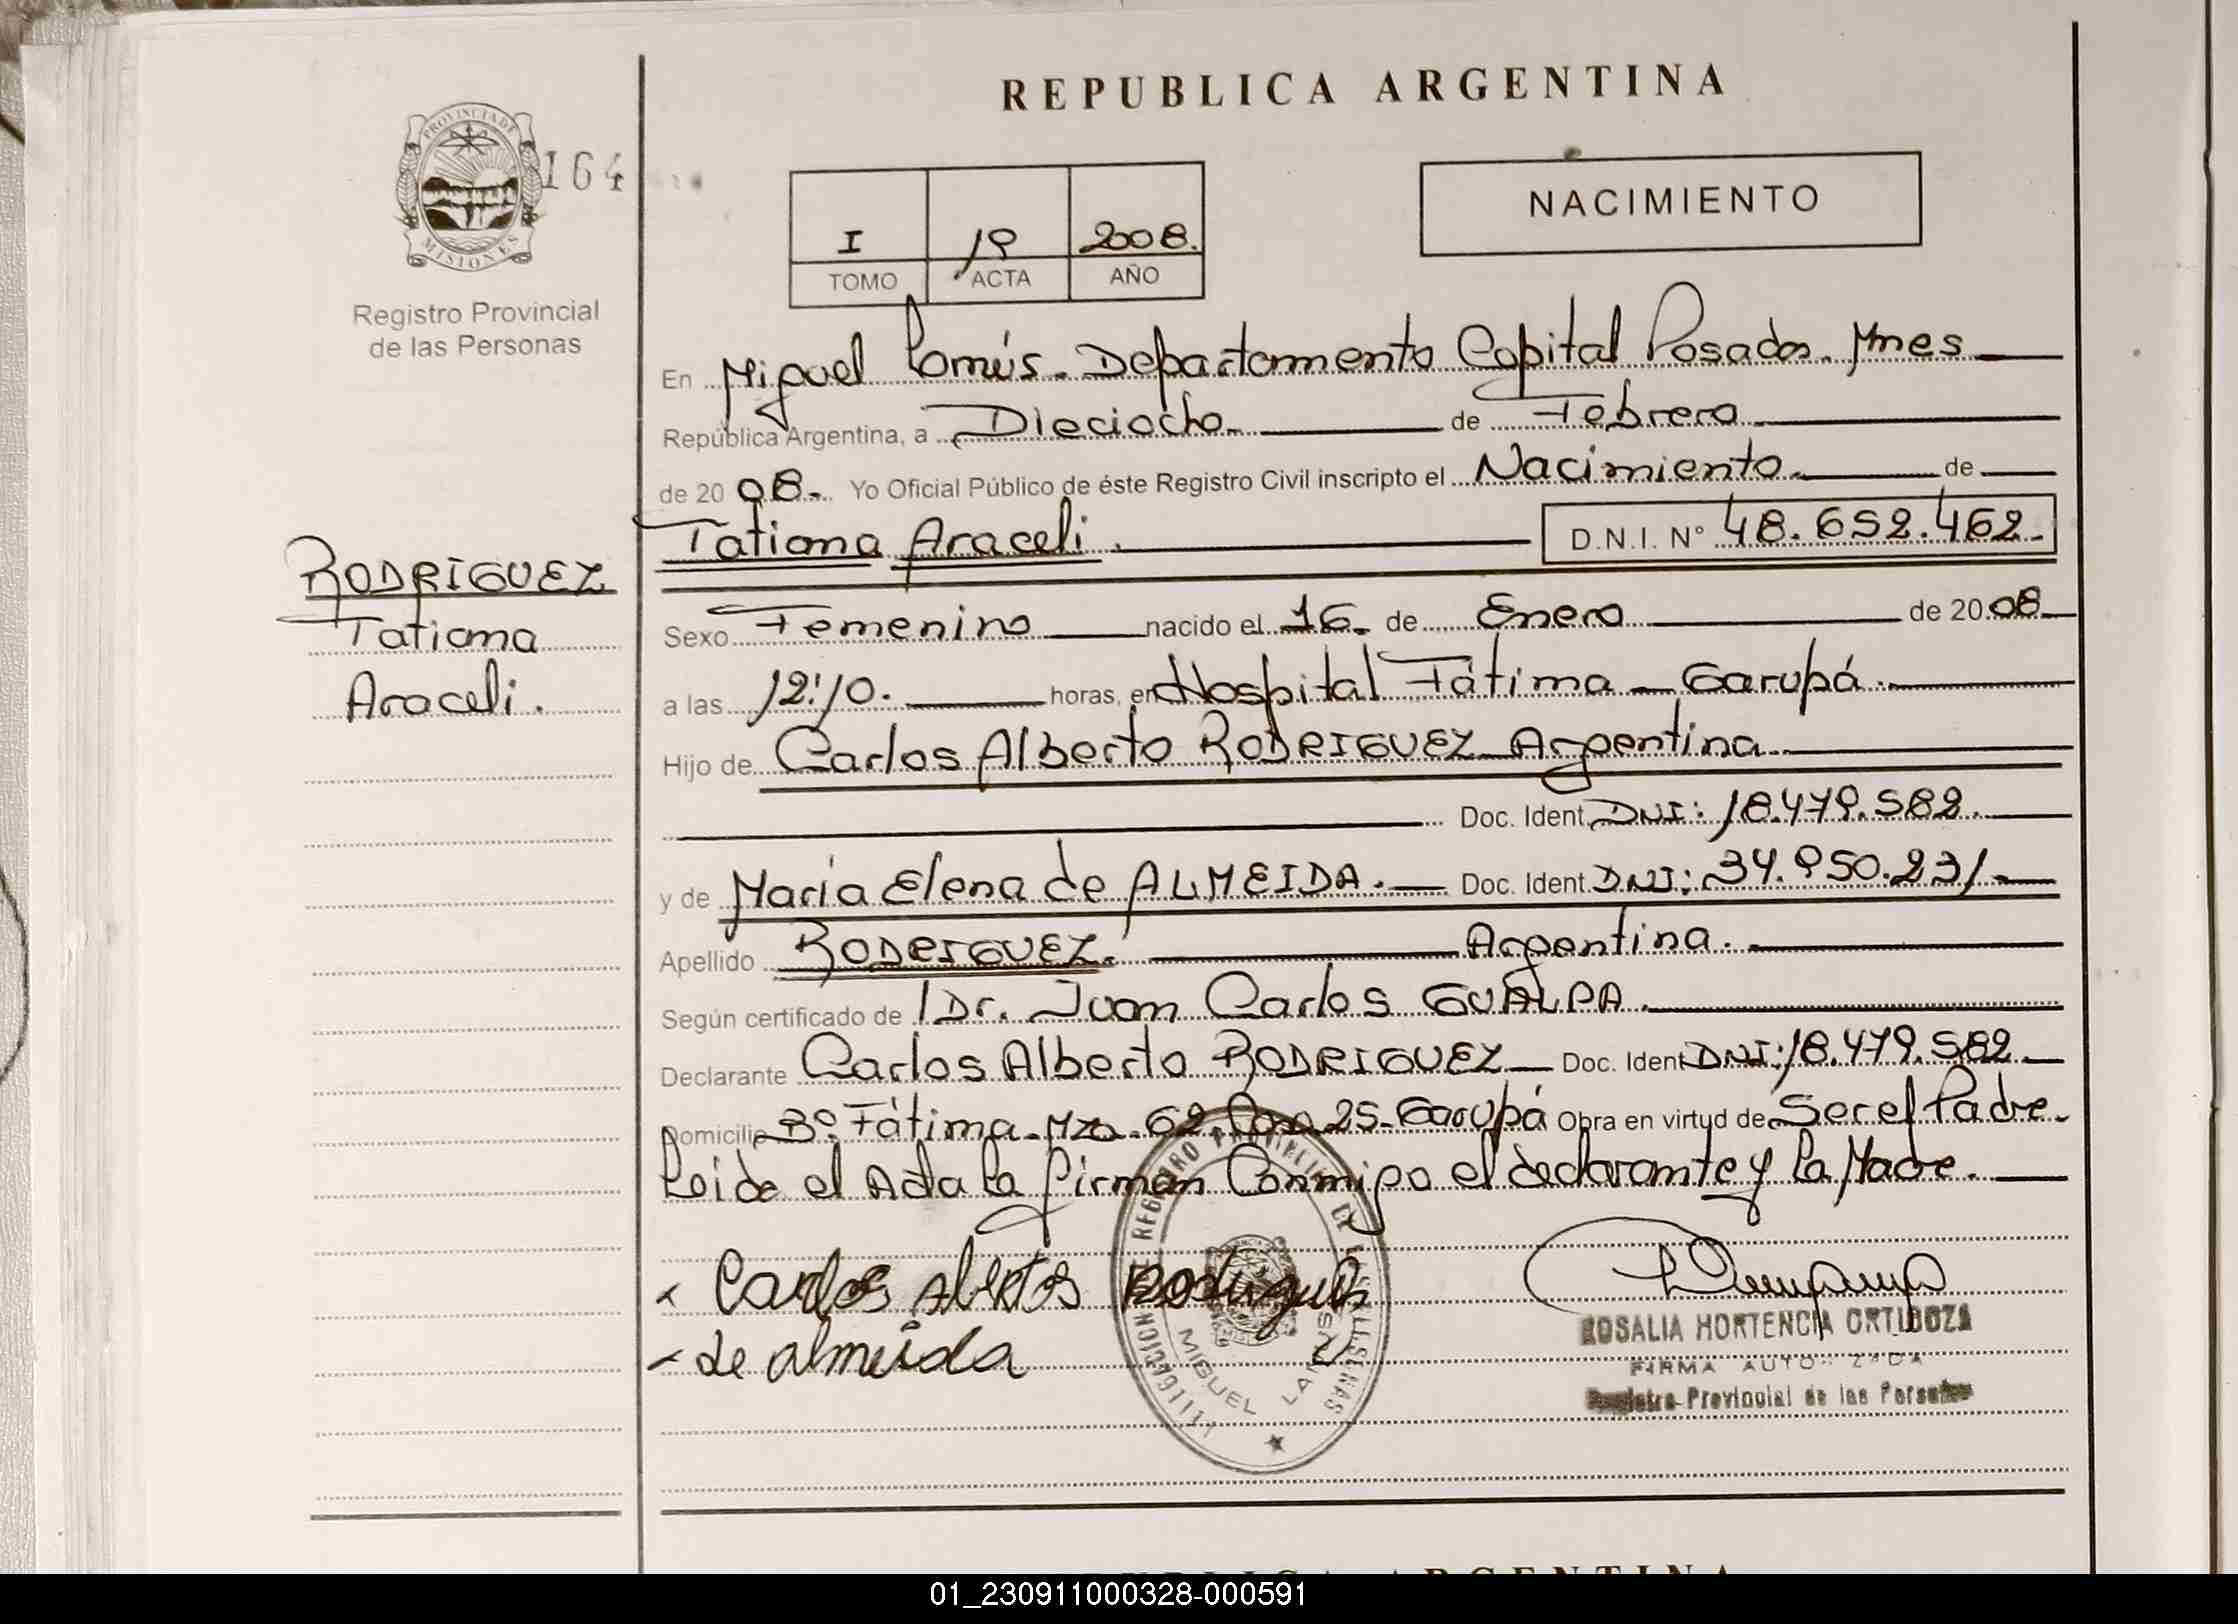 REPUBLICA ARGENTINA
PROVINCIA DE MISIONES
164
Registro Provincial
de las Personas
I 19 2008.
TOMO ACTA AÑO
NACIMIENTO
En Miguel Lanús. Departamento Capital Posadas. Mnes
República Argentina, a Dieciocho de Febrero
de 20 08. Yo Oficial Público de éste Registro Civil inscripto el Nacimiento de
Tatiana Araceli. D.N.I. Nº 48.652.462.
RODRIGUEZ
Tatiana
Araceli.
Sexo Femenino nacido el 16. de Enero de 20 08
a las 12:10. horas, en Hospital Fátima - Garupá.
Hijo de Carlos Alberto RODRIGUEZ Argentina
Doc. Ident. DNI: 18.479.582.
y de María Elena de ALMEIDA. Doc. Ident. DNI: 34.950.231
Apellido RODRIGUEZ. Argentina.
Según certificado de Dr. Juan Carlos GUALPA.
Declarante Carlos Alberto RODRIGUEZ Doc. Ident DNI: 18.479.582
Domicilio Bº. Fátima. Mza. 62. Casa 25. Garupá Obra en virtud de Ser el Padre.
Leida el Acta la firman Conmigo el declarante y la Madre.
Carlos Albertos Rodriguez
de almeida
MIGUEL LANUS
ROSALIA HORTENCIA ORTIGOZA
FIRMA AUTORIZADA
Registro Provincial de las Personas
REPUBLICA ARGENTINA
01_230911000328-000591